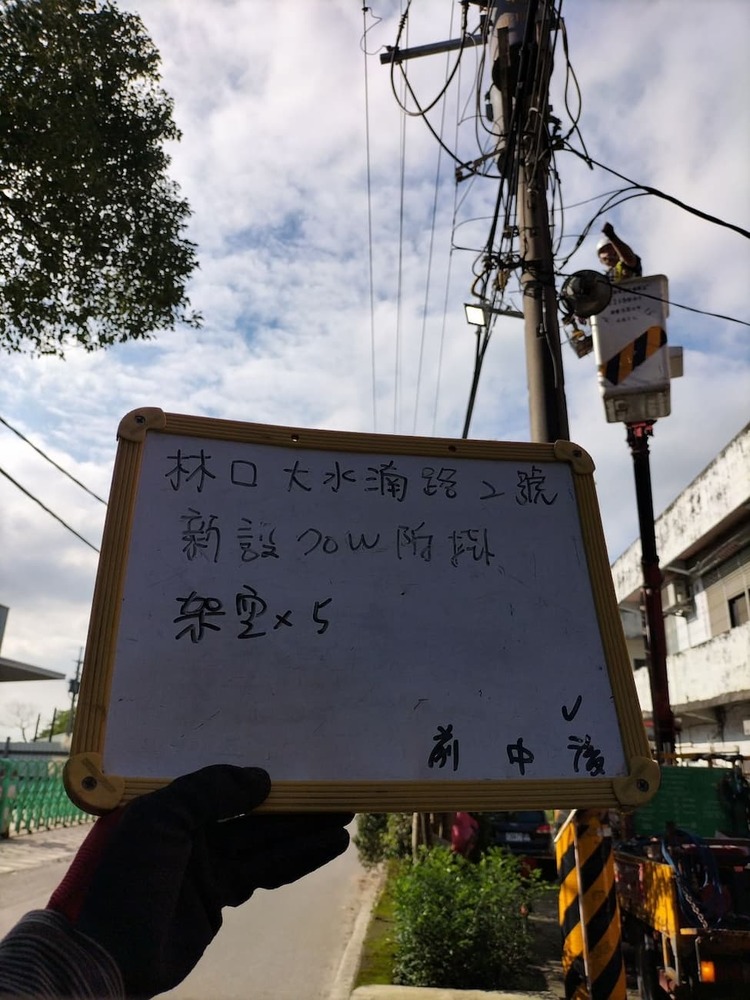 林口大水湳路2號
新設70W附掛
架空×5
✓
前 中 後